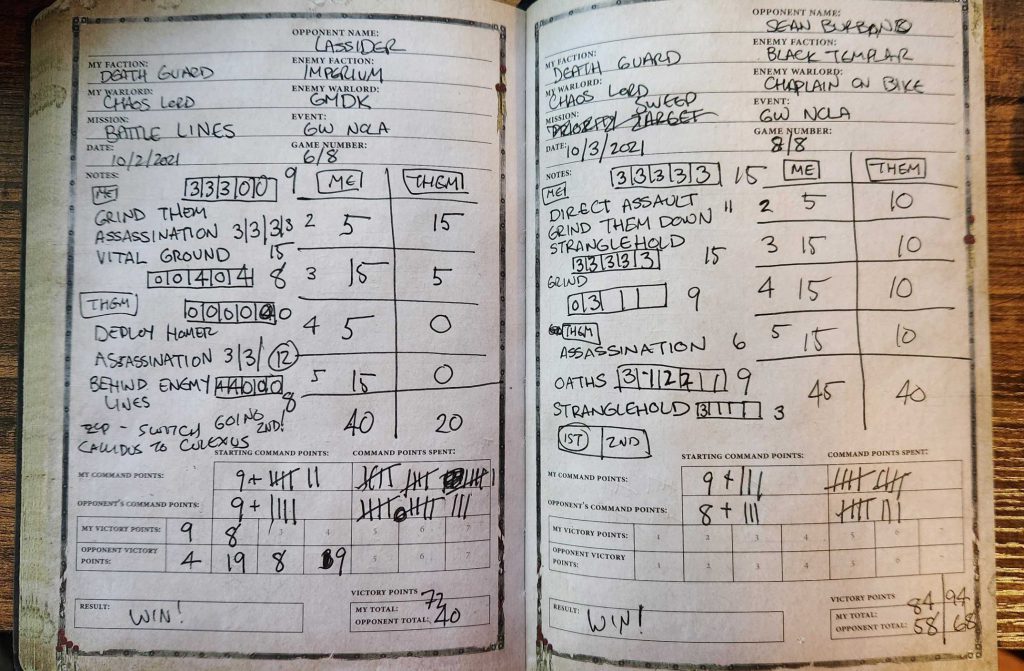 OPPONENT NAME:
LASSIDER
MY FACTION:
DEATH GUARD
ENEMY FACTION:
IMPERIUM
MY WARLORD:
CHAOS LORD
ENEMY WARLORD:
GMDK
MISSION:
BATTLE LINES
EVENT:
GW NOLA
DATE:
10/2/2021
GAME NUMBER:
6/8
NOTES:
ME
3 3 3 0 0 9
ME THEM
GRIND THEM
2 5 15
ASSASSINATION 3/3/3/3
VITAL GROUND 15
0 0 4 0 4 8
3 15 5
THEM
0 0 0 0 0 0
DEPLOY HOMER
4 5 0
ASSASSINATION 3/3/ 12
BEHIND ENEMY LINES 4 4 0 0 0 8
5 15 0
GOING 2ND!
40 20
SWITCH
CALLIDUS TO CULEXUS
STARTING COMMAND POINTS: COMMAND POINTS SPENT:
MY COMMAND POINTS:
9+
OPPONENT'S COMMAND POINTS:
9+ ||||
MY VICTORY POINTS:
9 8 3 4 5 6 7
OPPONENT VICTORY POINTS:
4 19 8 9 5 6 7
RESULT:
WIN!
VICTORY POINTS
MY TOTAL: 72
OPPONENT TOTAL: 40
OPPONENT NAME:
SEAN BURBANK
MY FACTION:
DEATH GUARD
ENEMY FACTION:
BLACK TEMPLAR
MY WARLORD:
CHAOS LORD
ENEMY WARLORD:
CHAPLAIN ON BIKE
MISSION:
SWEEP
PRIORITY TARGET
EVENT:
GW NOLA
DATE:
10/3/2021
GAME NUMBER:
8/8
NOTES:
ME
3 3 3 3 3 15
ME THEM
DIRECT ASSAULT
GRIND THEM DOWN 11
2 5 10
STRANGLEHOLD
3 3 3 3 3 15
3 15 10
GRIND
0 3 9
4 15 10
THEM
ASSASSINATION 6
5 15 10
OATHS 9
STRANGLEHOLD 3 3
45 40
1ST 2ND
STARTING COMMAND POINTS: COMMAND POINTS SPENT:
MY COMMAND POINTS:
9 + |||
OPPONENT'S COMMAND POINTS:
8 + |||
MY VICTORY POINTS:
1 2 3 4 5 6 7
OPPONENT VICTORY POINTS:
1 2 3 4 5 6 7
RESULT:
WIN!
VICTORY POINTS
MY TOTAL: 84 94
OPPONENT TOTAL: 58 68